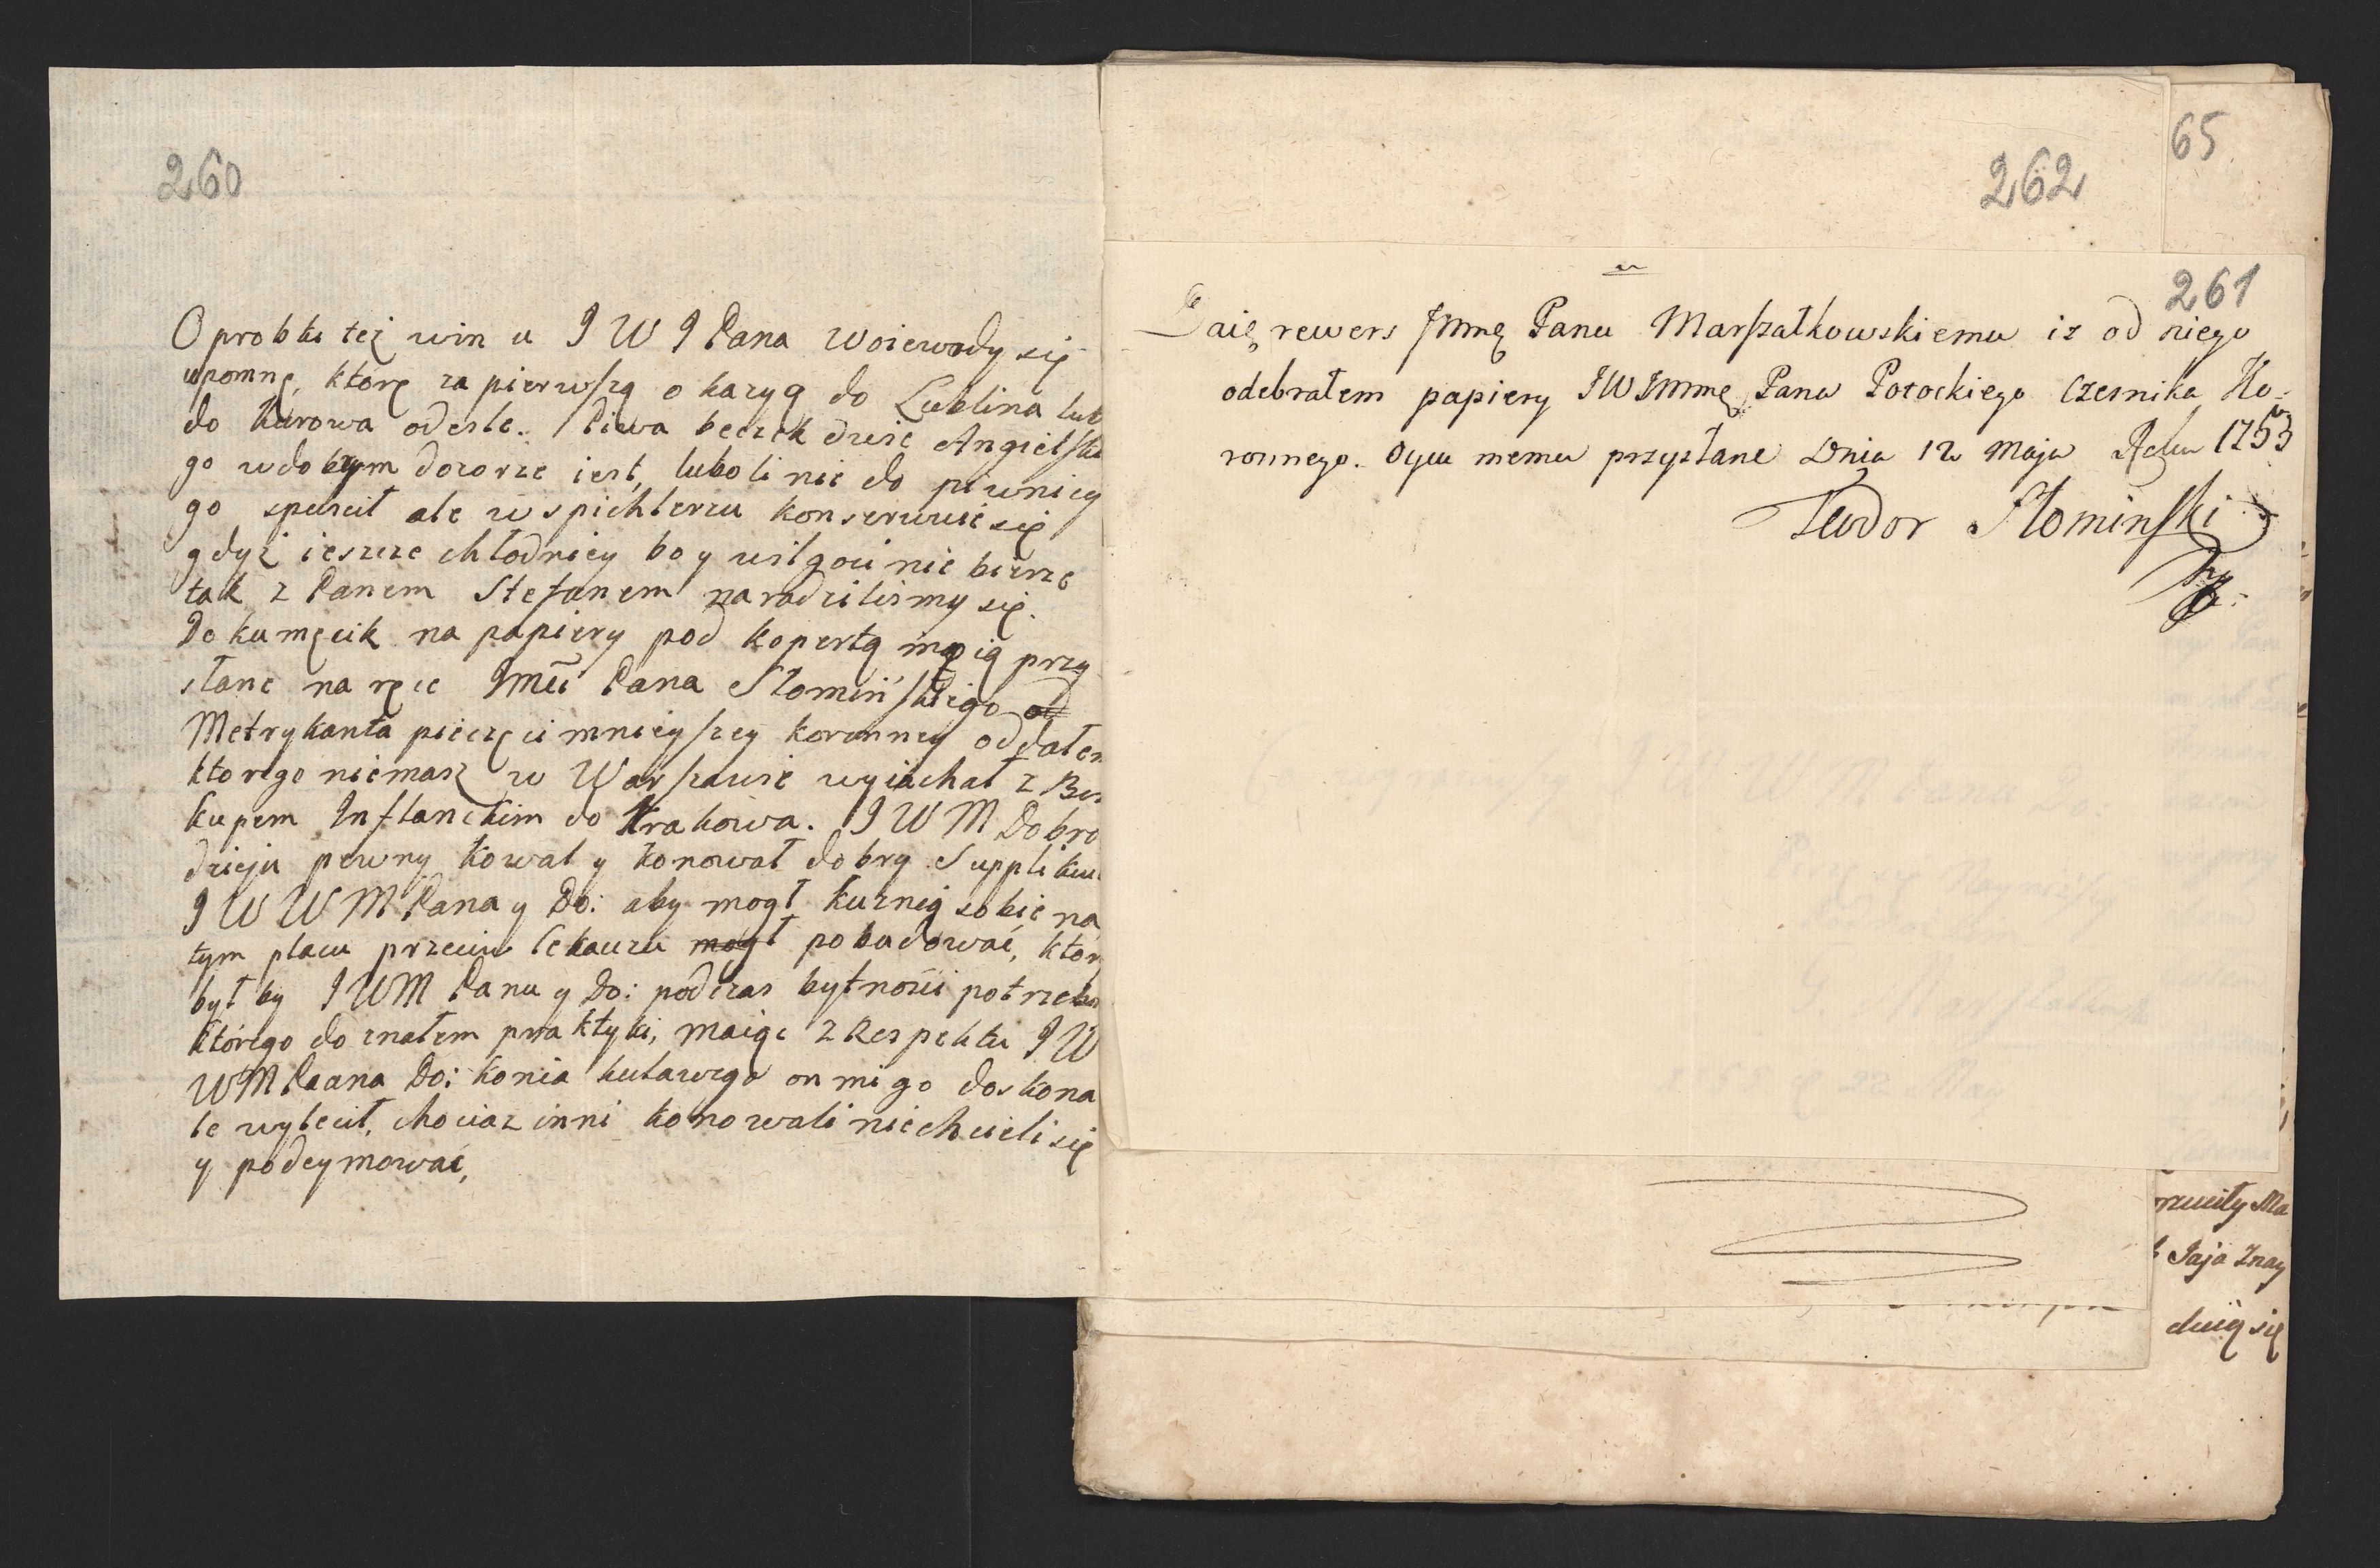 260
O probki też win u J W J Pana Woiewody się
upomnę, które za pierwszą okazyą do Lublina lub
do Kurowa odesle. Piwa beczek dwie Angielskie
go w dobrym dozorze iest, luboli nie do piwnicy
go spuscił ale w spichlerzu konserwuie się
gdyż ieszcze chłodniey bo y wilgoci nie bierze
tak z Panem Stefanem naradzilismy się.
Dokumęcik na papiery pod kopertą moią przy
słane na ręce Jmći Pana Słomińskiego od
Metrykanta pieczęci mnieyszey koronney oddałem
ktorego niemasz w Warszawie wyiachał z Bis
kupem Inflanckim do Krakowa. J W M Dobro
dzieju pewny kowal y konował dobry Supplikuie
J W W M Pana y Do: aby mogł kuznią sobie na
tym placu przeciw lekauzu mogł pobudować, ktory
był by J W M Panu y Do: podczas bytności potrzebny
którego doznałem praktyki, maiąc z Respektu J W
W M Paana Do: konia kulawego on mi go doskona
le wyleczł, chociaz inni konowali niechcieli się
y podeymować,
65
262
261
Daię rewers Jmmę Panu Marszałkowskiemu iz od niego
odebrałem papiery JW Jmmę Pana Potockiego Czesnika Ko-
ronnego. Oycu memu przysłane Dnia 12 Maja Roku 1753
Teodor Słominski
rzuciły Ma
Jaja Znay
duią się